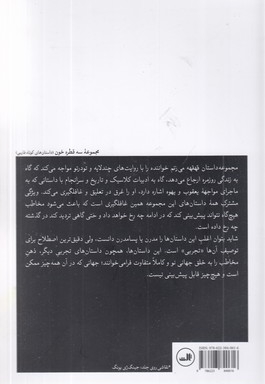 مجموعهٔ سه قطره خون (داستان‌های کوتاه فارسی)
مجموعه‌داستان قهقهه می‌زنم خواننده را با روایت‌های چندلایه و تودرتو مواجه می‌کند که گاه
به زندگی روزمره ارجاع می‌دهد، گاه به ادبیات کلاسیک و تاریخ و سرانجام با داستانی که به
ماجرای مواجههٔ یعقوب و یهوه اشاره دارد، او را غرق در تعلیق و غافلگیری می‌کند. ویژگی
مشترک همهٔ داستان‌های این مجموعه همین غافلگیری است که باعث می‌شود مخاطب
هیچ‌گاه نتواند پیش‌بینی کند که در ادامه چه رخ خواهد داد و حتی گاهی تردید کند در گذشته
چه رخ داده است.
شاید بتوان اغلب این داستان‌ها را مدرن یا پسامدرن دانست، ولی دقیق‌ترین اصطلاح برای
توصیف آن‌ها «تجربی» است. داستان‌هایی که، همچون داستان‌های تجربی دیگر، ذهن
مخاطب را به خلق جهانی نو و کاملاً متفاوت فرامی‌خوانند؛ جهانی که در آن همه‌چیز ممکن
و هیچ‌چیز قابل پیش‌بینی نیست.
*نقاشی روی جلد: